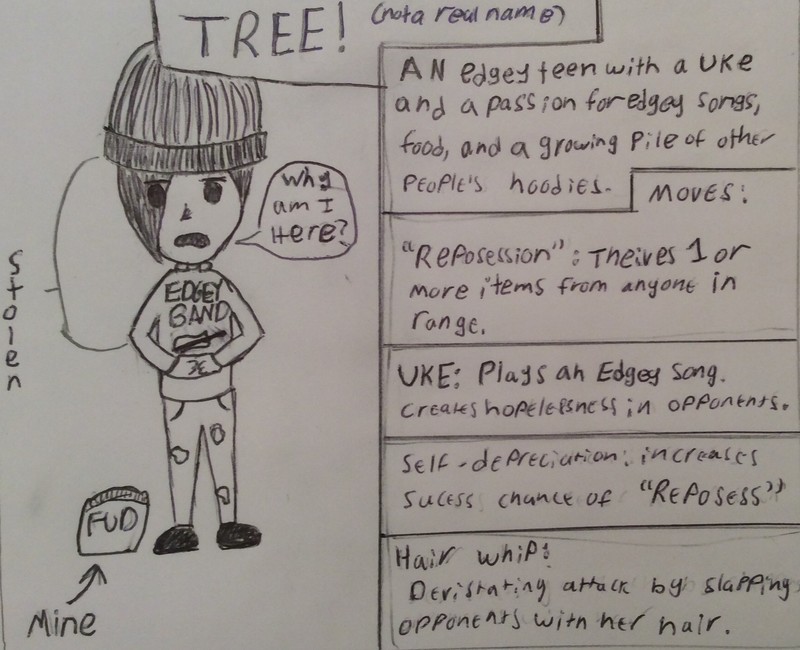 TREE! (not a real name)
AN edgey teen with a UKE
and a passion for edgey songs,
food, and a growing Pile of other
PEOPLE'S hoodies.
MOVES:
"REPOSESSION": THEIVES 1 or
more items from anyone in
range.
UKE: Plays an Edgey Song.
creates hopelessness in opponents.
Self-depreciation: increases
sucess chance of "REPOSESS"
Hair whip:
Devistating attack by slapping
opponents with her hair.
Why
am I
Here?
Stolen
EDGEY
BAND
FUD
Mine